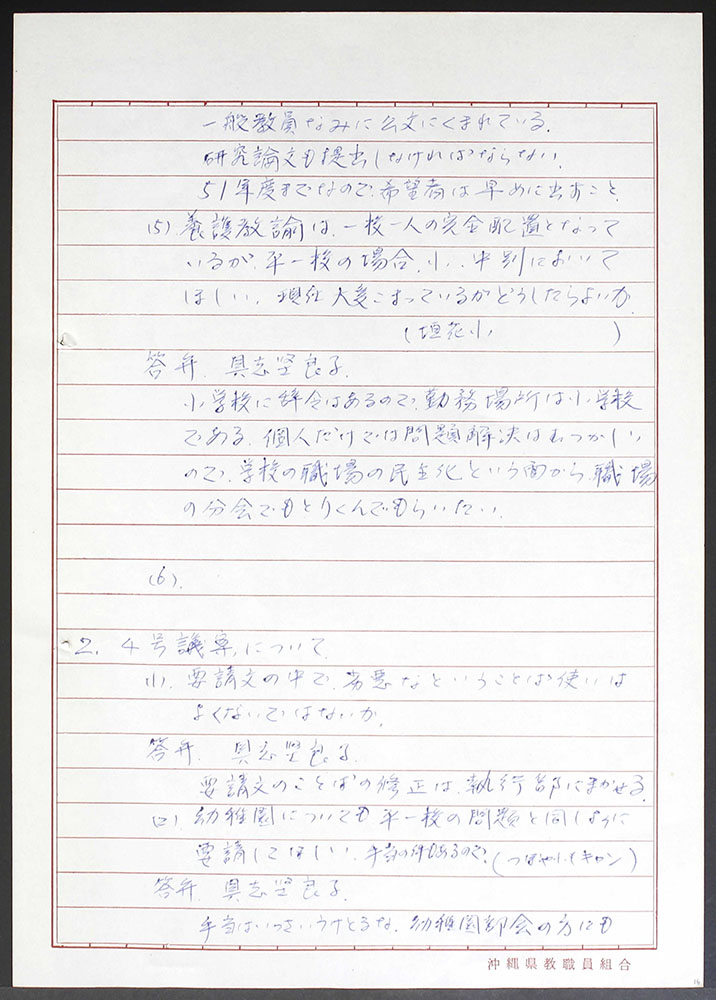 一般教員なみに公文にくまれている.
研究論文も提出しなければならない.
51年度までなので、希望者は早めに出すこと.
(5) 養護教諭は、一校一人の完全配置となって
いるが、平一校の場合、小、中別において
ほしい。現在大変こまっているがどうしたらよいか.
(垣花小 )
答弁. 具志堅良子.
小学校に辞令はあるので、勤務場所は小学校
である。個人だけでは問題解決はむつかしい
ので、学校の職場の民主化という面から、職場
の分会でもとりくんでもらいたい.
(6).
2. 4号議案について
(1). 要請文の中で、劣悪なということば使いは
よくないではないか.
答弁. 具志堅良子.
要請文のことばの修正は、執行部にまかせる.
(2). 幼稚園についても平一校の問題と同じように
要請してほしい. 手当の件もあるので.
答弁. 具志堅良子.
手当はいっさいうけとるな. 幼稚園部会の方にも
沖縄県教職員組合
16